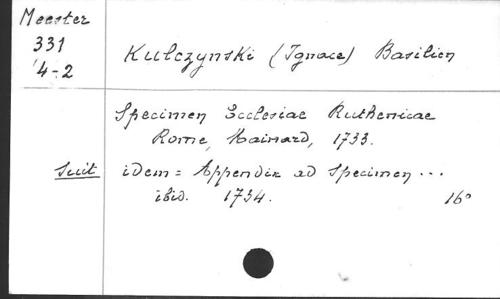 Meester
331
4-2
Kulczynski (Ignace) Basilien
Specimen Ecclesiae Ruthenicae
Rome, Mainard, 1733.
Suit idem = Appendix ad Specimen ...
ibid. 1734. 16°